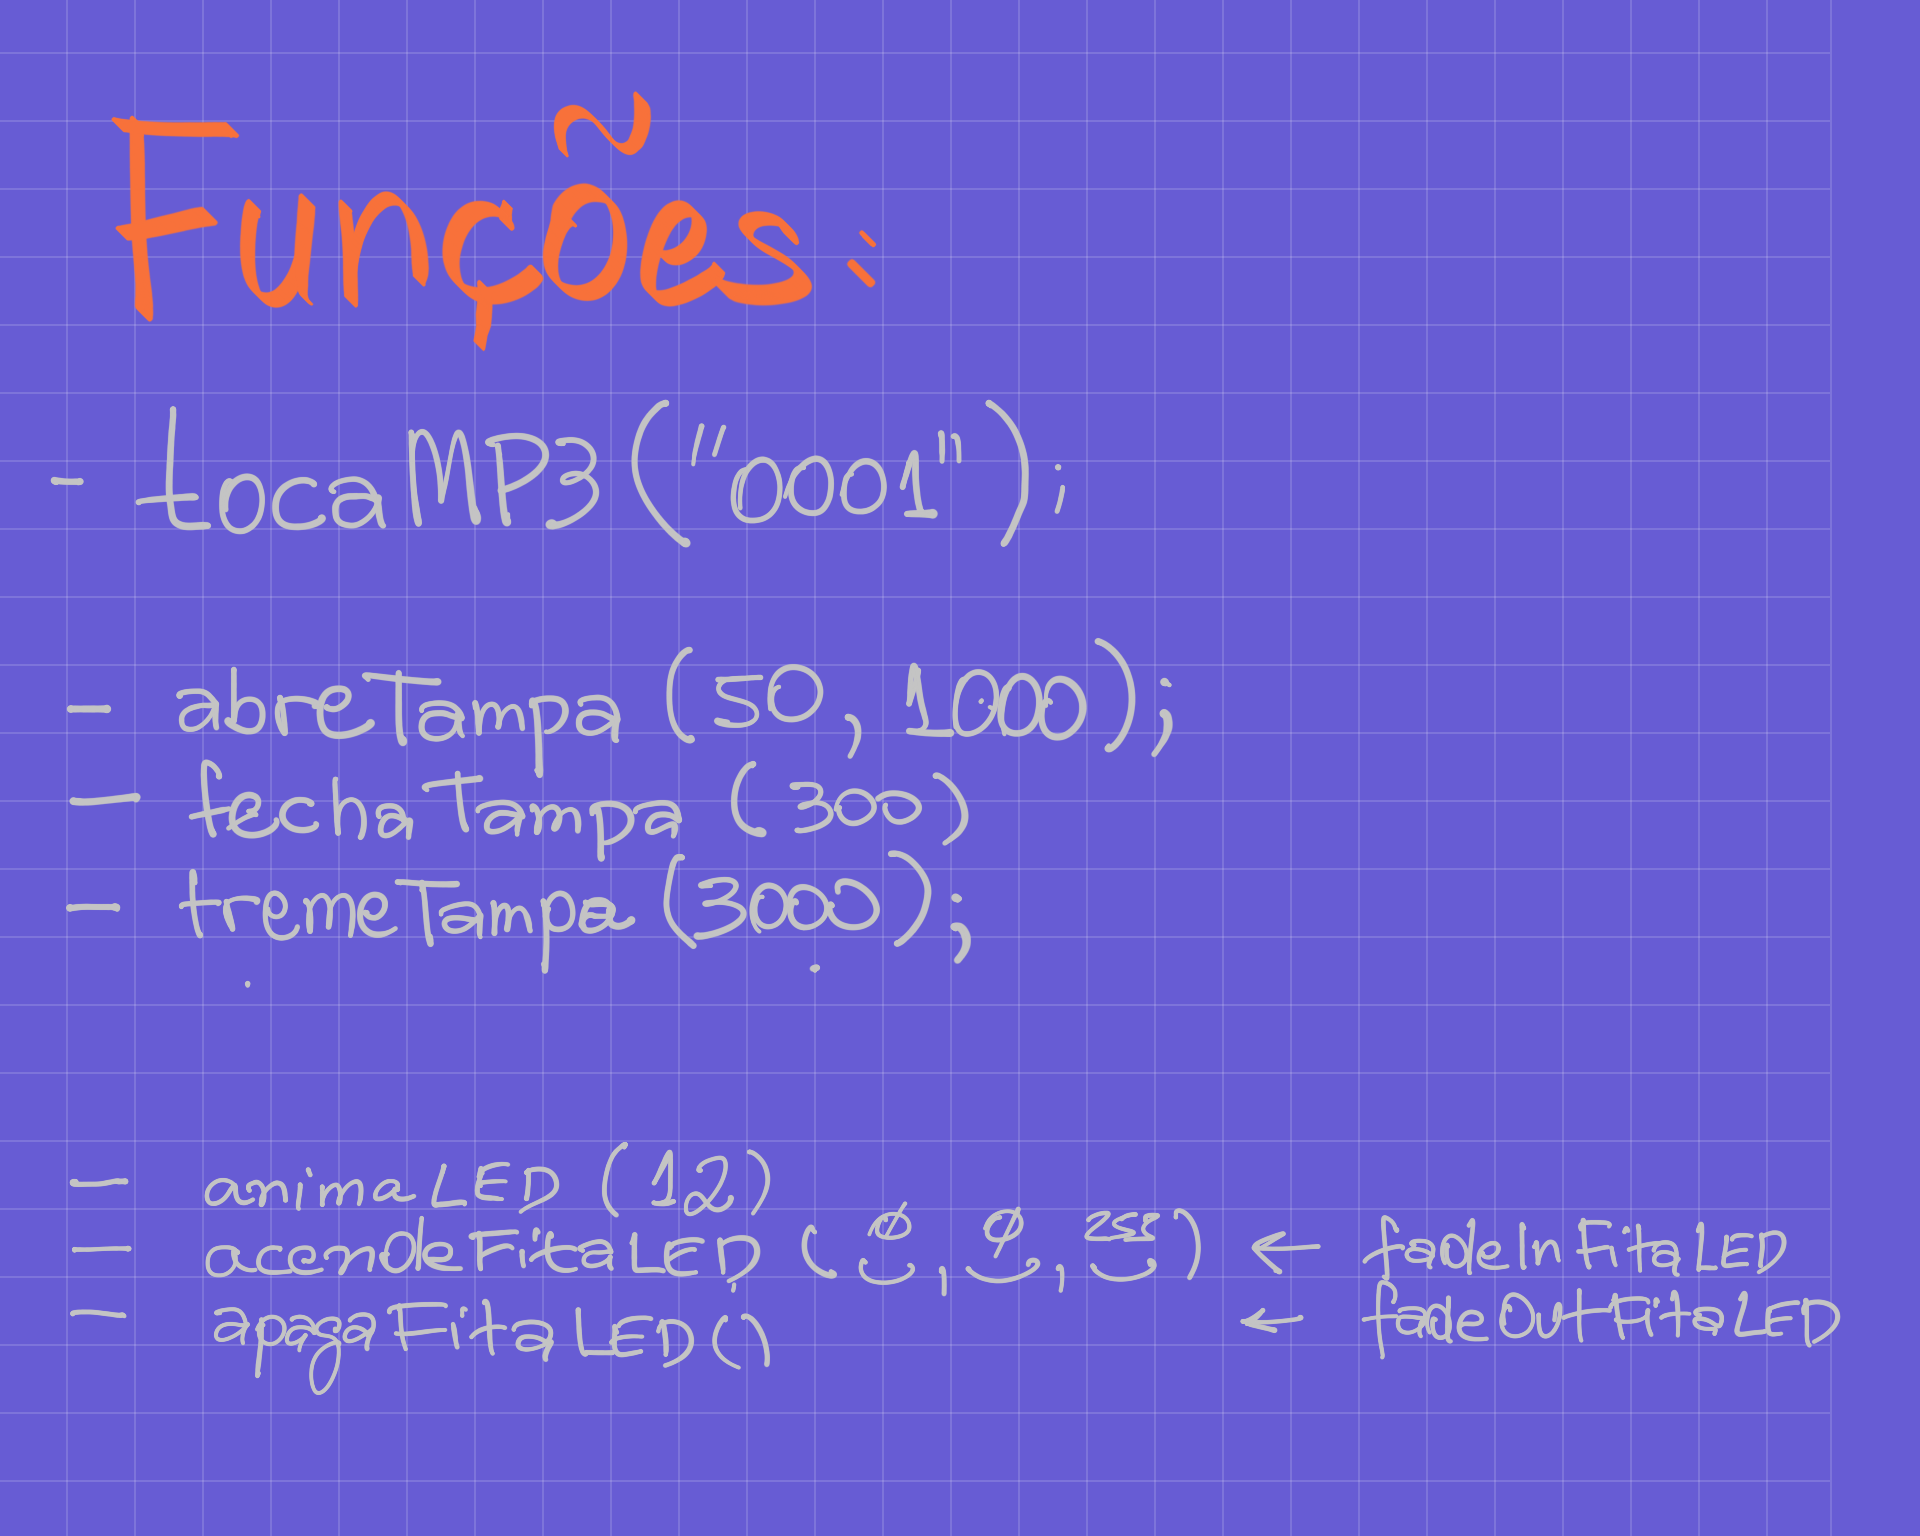 Funções:
- tocaMP3("0001");
- abreTampa (50, 1000);
- fechaTampa (300)
- tremeTampa (3000);
- animaLED (12)
- acendeFitaLED (0, 0, 255) ← fadeInFitaLED
- apagaFitaLED() ← fadeOutFitaLED